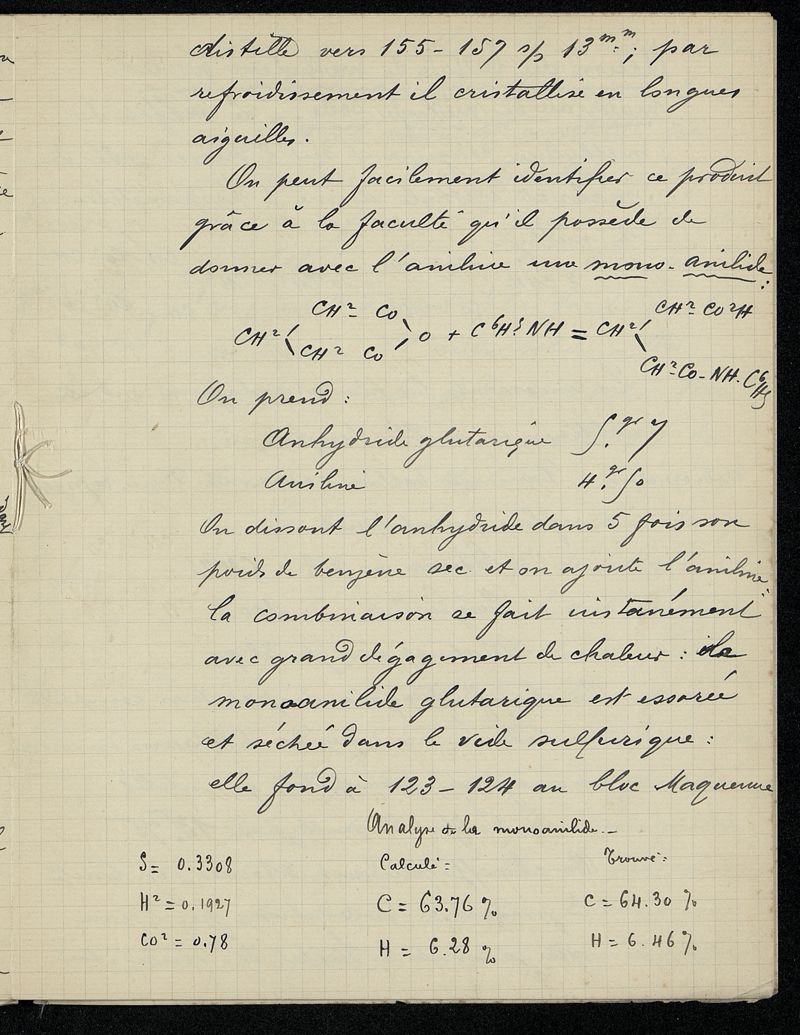 distille vers 155-157 s/p 13 mm; par
refroidissement il cristallise en longues
aiguilles.
On peut facilement identifier ce produit
grâce à la faculté qu'il possède de
donner avec l'aniline une mono-anilide:
CH²- CO CH²- CO²H
CH² O + C⁶H⁵NH = CH²
CH² CO CH²-CO-NH-C⁶H⁵
On prend:
Anhydride glutarique 5.gr 7
Aniline 4.gr 50
On dissout l'anhydride dans 5 fois son
poids de benzène sec et on ajoute l'aniline
la combinaison se fait instanément
avec grand dégagement de chaleur: la
monoanilide glutarique est essorée
et séchée dans le vide sulfurique:
elle fond à 123-124 au bloc Maquenne
Analyse de la monoanilide.-
S = 0.3308 Calculé: Trouvé:
H² = 0.1927 C = 63.76 % C = 64.30 %
CO² = 0.78 H = 6.28 % H = 6.46 %